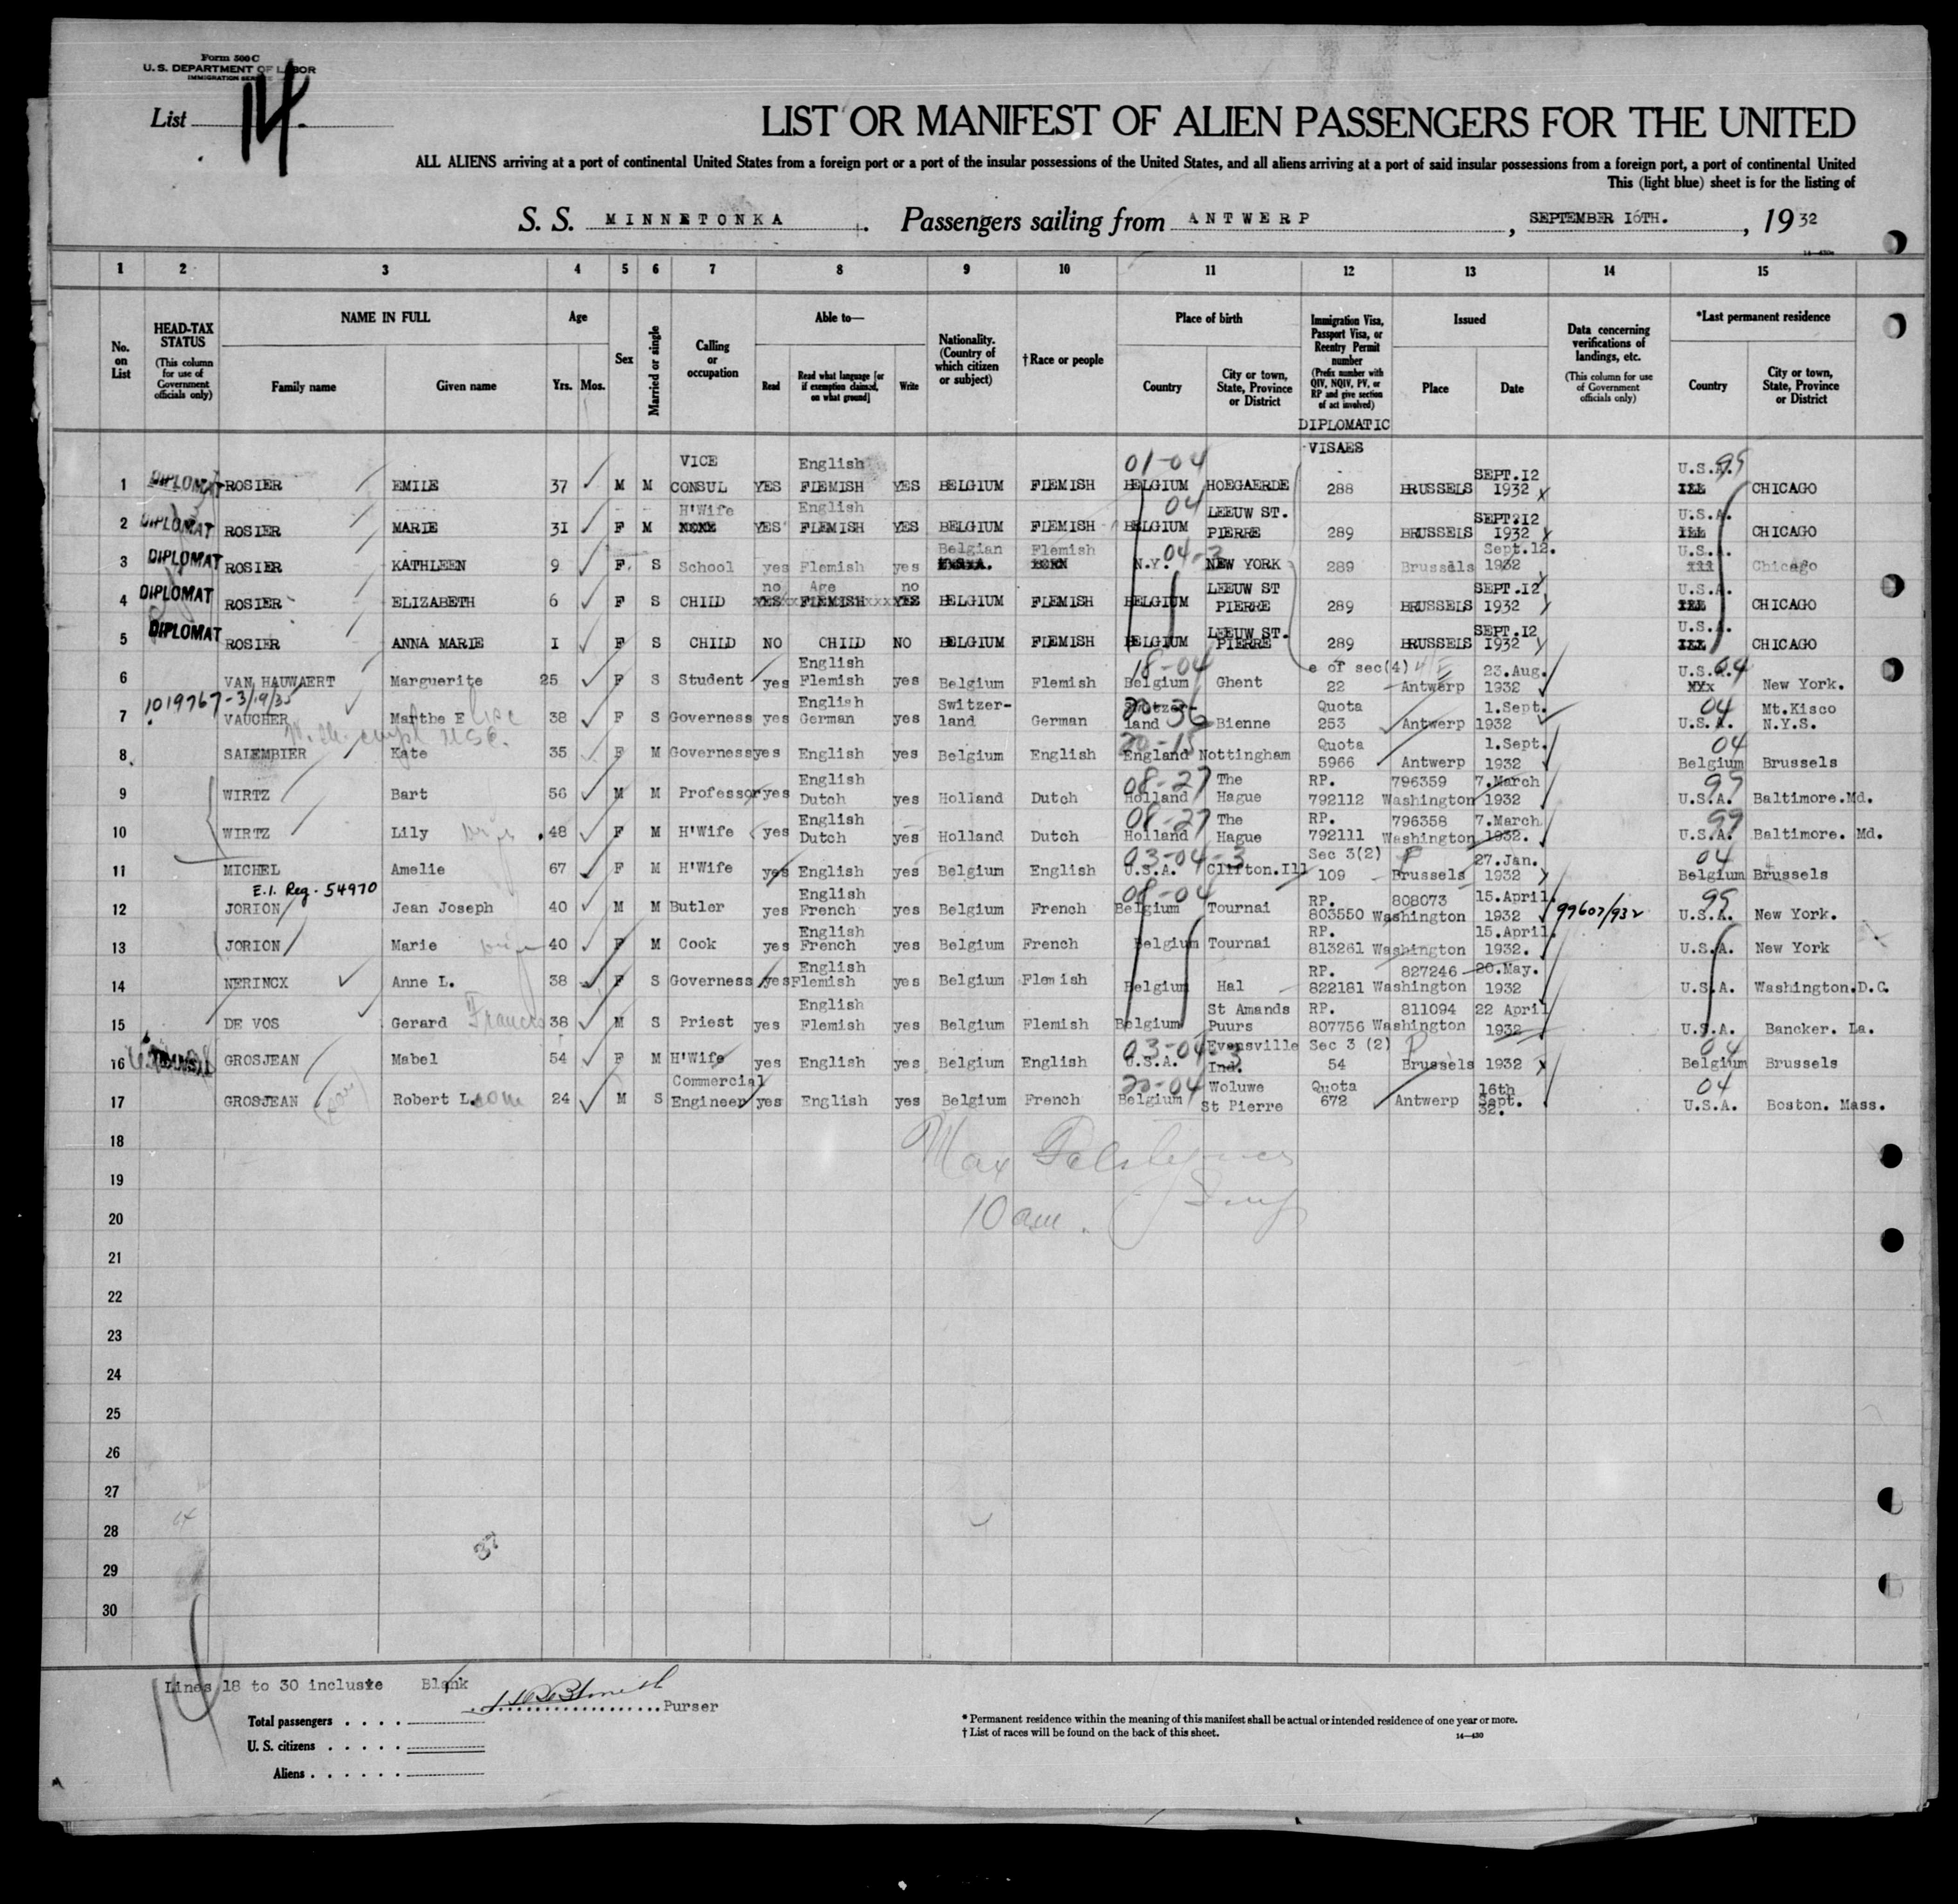 Form 500 C
U. S. DEPARTMENT OF LABOR
IMMIGRATION SERVICE
List 14.
LIST OR MANIFEST OF ALIEN PASSENGERS FOR THE UNITED
ALL ALIENS arriving at a port of continental United States from a foreign port or a port of the insular possessions of the United States, and all aliens arriving at a port of said insular possessions from a foreign port, a port of continental United
This (light blue) sheet is for the listing of
S. S. MINNETONKA. Passengers sailing from ANTWERP, SEPTEMBER 16TH., 1932
14-430a
1 2 3 4 5 6 7 8 9 10 11 12 13 14 15
No. on List
HEAD-TAX STATUS (This column for use of Government officials only)
NAME IN FULL Family name Given name
Age Yrs. Mos.
Sex
Married or single
Calling or occupation
Able to— Read Read what language [or if exemption claimed, on what ground] Write
Nationality. (Country of which citizen or subject)
†Race or people
Place of birth Country City or town, State, Province or District
Immigration Visa, Passport Visa, or Reentry Permit number (Prefix number with QIV, NQIV, PV, or RP and give section of act involved)
Issued Place Date
Data concerning verifications of landings, etc. (This column for use of Government officials only)
*Last permanent residence Country City or town, State, Province or District
DIPLOMATIC VISAES
1 DIPLOMAT ROSIER EMILE 37 M M VICE CONSUL YES English FLEMISH YES BELGIUM FLEMISH 01-04 BELGIUM HOEGAERDE 288 BRUSSELS SEPT.12 1932 U.S.A. 99 ILL CHICAGO
2 DIPLOMAT ROSIER MARIE 31 F M H'Wife YES English FLEMISH YES BELGIUM FLEMISH 04 BELGIUM LEEUW ST. PIERRE 289 BRUSSELS SEPT.12 1932 U.S.A. ILL CHICAGO
3 DIPLOMAT ROSIER KATHLEEN 9 F. S School yes Flemish yes Belgian Flemish N.Y. 04-3 NEW YORK 289 Brussels Sept.12. 1932 U.S.A. Ill Chicago
4 DIPLOMAT ROSIER ELIZABETH 6 F S CHILD no YES Age FLEMISH no YES BELGIUM FLEMISH BELGIUM LEEUW ST PIERRE 289 BRUSSELS SEPT.12 1932 U.S.A. ILL CHICAGO
5 DIPLOMAT ROSIER ANNA MARIE I F S CHILD NO CHILD NO BELGIUM FLEMISH BELGIUM LEEUW ST. PIERRE 289 BRUSSELS SEPT.12 1932 U.S.A. ILL CHICAGO
6 VAN HAUWAERT Marguerite 25 F S Student yes English Flemish yes Belgium Flemish 18-04 Belgium Ghent e of sec(4) 22 Antwerp 23.Aug. 1932 U.S.A. 04 New York.
1019767-3/19/35
7 VAUCHER Marthe E 38 F S Governess yes English German yes Switzer-land German 20-36 Switzer-land Bienne Quota 253 Antwerp 1.Sept. 1932 04 U.S.A. Mt.Kisco N.Y.S.
8 SALEMBIER Kate 35 F M Governess yes English yes Belgium English 20-15 England Nottingham Quota 5966 Antwerp 1.Sept. 1932 04 Belgium Brussels
9 WIRTZ Bart 56 M M Professor yes English Dutch yes Holland Dutch 08-27 Holland The Hague RP. 792112 796359 Washington 7.March 1932 99 U.S.A. Baltimore.Md.
10 WIRTZ Lily wife 48 F M H'Wife yes English Dutch yes Holland Dutch 08-27 Holland The Hague RP. 792111 796358 Washington 7.March 1932. 99 U.S.A. Baltimore. Md.
11 MICHEL Amelie 67 F M H'Wife yes English yes Belgium English 03-04-3 U.S.A. Clifton.Ill Sec 3(2) 109 Brussels 27.Jan. 1932 04 Belgium Brussels
E.I. Reg. 54970
12 JORION Jean Joseph 40 M M Butler yes English French yes Belgium French 08-04 Belgium Tournai RP. 803550 808073 Washington 15.April. 1932 99607/932 99 U.S.A. New York.
13 JORION Marie wife 40 F M Cook yes English French yes Belgium French Belgium Tournai RP. 813261 Washington 15.April. 1932. U.S.A. New York
14 NERINCX Anne L. 38 F S Governess yes English Flemish yes Belgium Flemish Belgium Hal RP. 822181 827246 Washington 20.May. 1932 U.S.A. Washington.D.C.
15 DE VOS Gerard Francis 38 M S Priest yes English Flemish yes Belgium Flemish Belgium St Amands Puurs RP. 807756 811094 Washington 22 April 1932 U.S.A. Bancker. La.
16 TRANSIT GROSJEAN Mabel 54 F M H'Wife yes English yes Belgium English 03-04-3 U.S.A. Evensville Ind. Sec 3 (2) 54 Brussels 1932 04 Belgium Brussels
17 GROSJEAN Robert L. son 24 M S Commercial Engineer yes English yes Belgium French 20-04 Belgium Woluwe St Pierre Quota 672 Antwerp 16th Sept. 32. 04 U.S.A. Boston. Mass.
18
19 Max
20 10 am.
21
22
23
24
25
26
27
28
29
30
14
Lines 18 to 30 inclusie Blank Purser
Total passengers
U. S. citizens
Aliens
* Permanent residence within the meaning of this manifest shall be actual or intended residence of one year or more.
† List of races will be found on the back of this sheet.
14—430